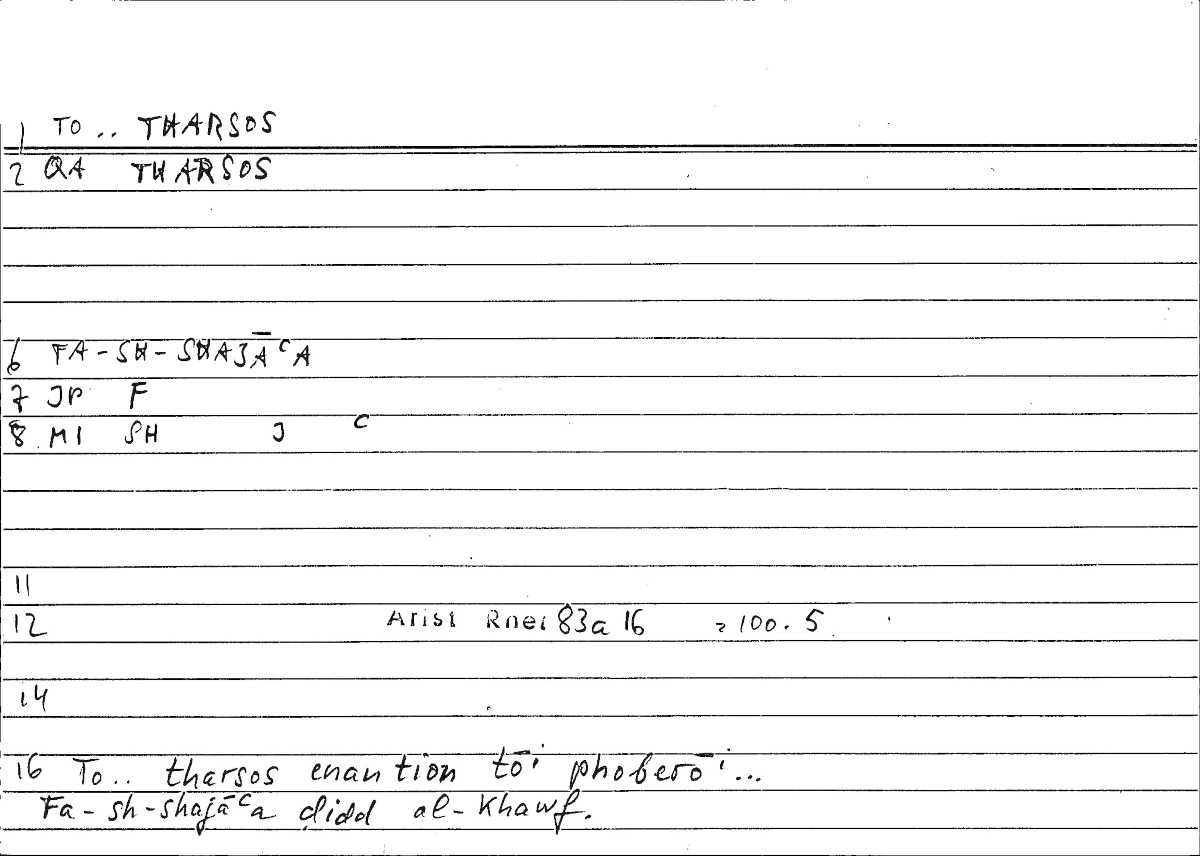 1 TO .. THARSOS
2 QA THARSOS
6 FA-SH-SHAJĀᶜA
7 JP F
8 MI SH J ᶜ
11
12 Arist Rhet 83a 16 = 100.5
14
16 To.. tharsos enantion tōi phoberōi...
Fa-sh-shajāᶜa didd al-Khawf.